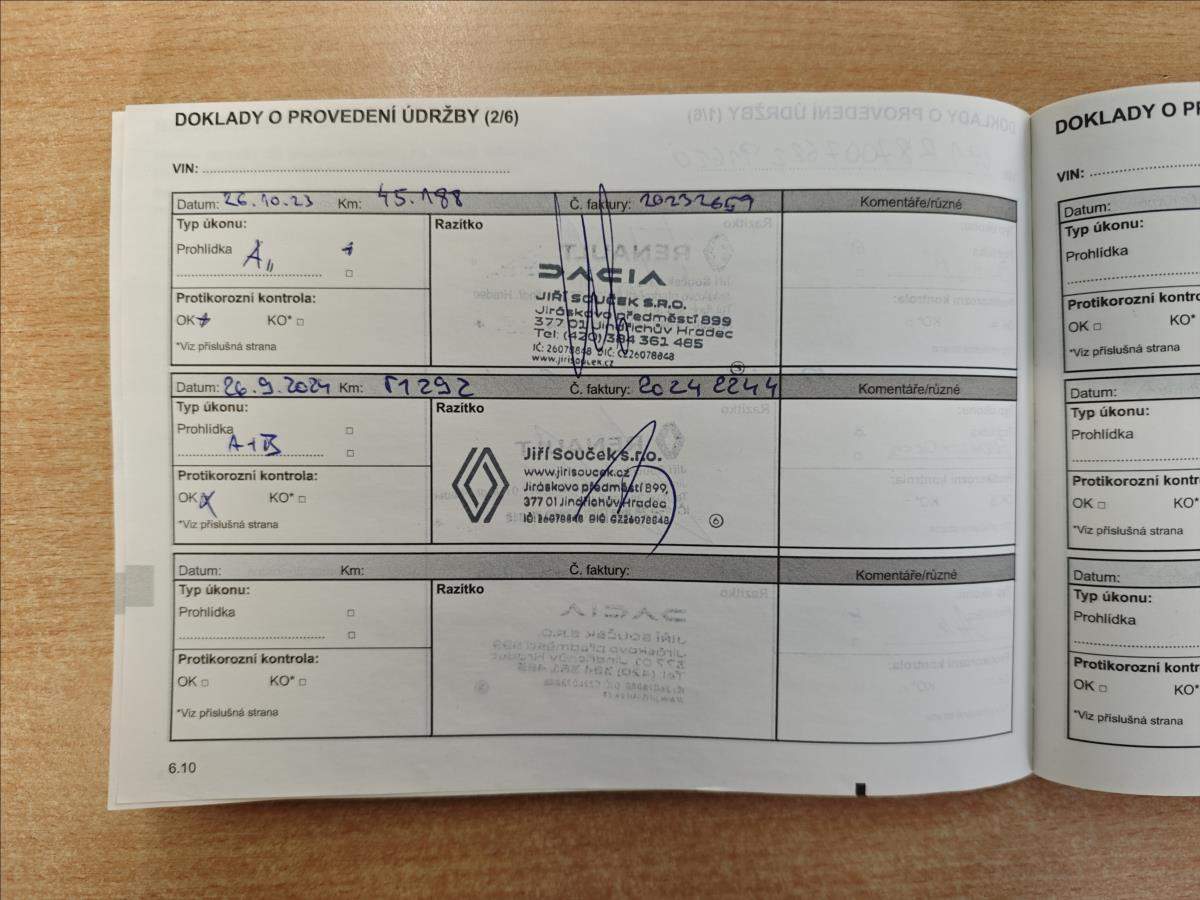 DOKLADY O PROVEDENÍ ÚDRŽBY (2/6)
VIN:
Datum: 26.10.23 Km: 45.188 Č. faktury: 20232659 Komentáře/různé
Typ úkonu: Razítko
Prohlídka A
DACIA
JIŘÍ SOUČEK S.R.O.
Jiráskovo předměstí 899
377 01 Jindřichův Hradec
Tel: (420) 384 361 485
IČ: 26078848 DIČ: CZ26078848
www.jirisoucek.cz
Protikorozní kontrola:
OK KO*
*Viz příslušná strana
Datum: 26.9.2024 Km: 51292 Č. faktury: 20242244 Komentáře/různé
Typ úkonu: Razítko
Prohlídka
A+B
Jiří Souček s.r.o.
www.jirisoucek.cz
Jiráskovo předměstí 899,
377 01 Jindřichův Hradec
IČ: 26078848 DIČ: CZ26078848
6
Protikorozní kontrola:
OK X KO*
*Viz příslušná strana
Datum: Km: Č. faktury: Komentáře/různé
Typ úkonu: Razítko
Prohlídka
Protikorozní kontrola:
OK KO*
*Viz příslušná strana
6.10
DOKLADY O PR
VIN:
Datum:
Typ úkonu:
Prohlídka
Protikorozní kontr
OK KO*
*Viz příslušná strana
Datum:
Typ úkonu:
Prohlídka
Protikorozní kontr
OK KO*
*Viz příslušná strana
Datum:
Typ úkonu:
Prohlídka
Protikorozní kontr
OK KO*
*Viz příslušná strana